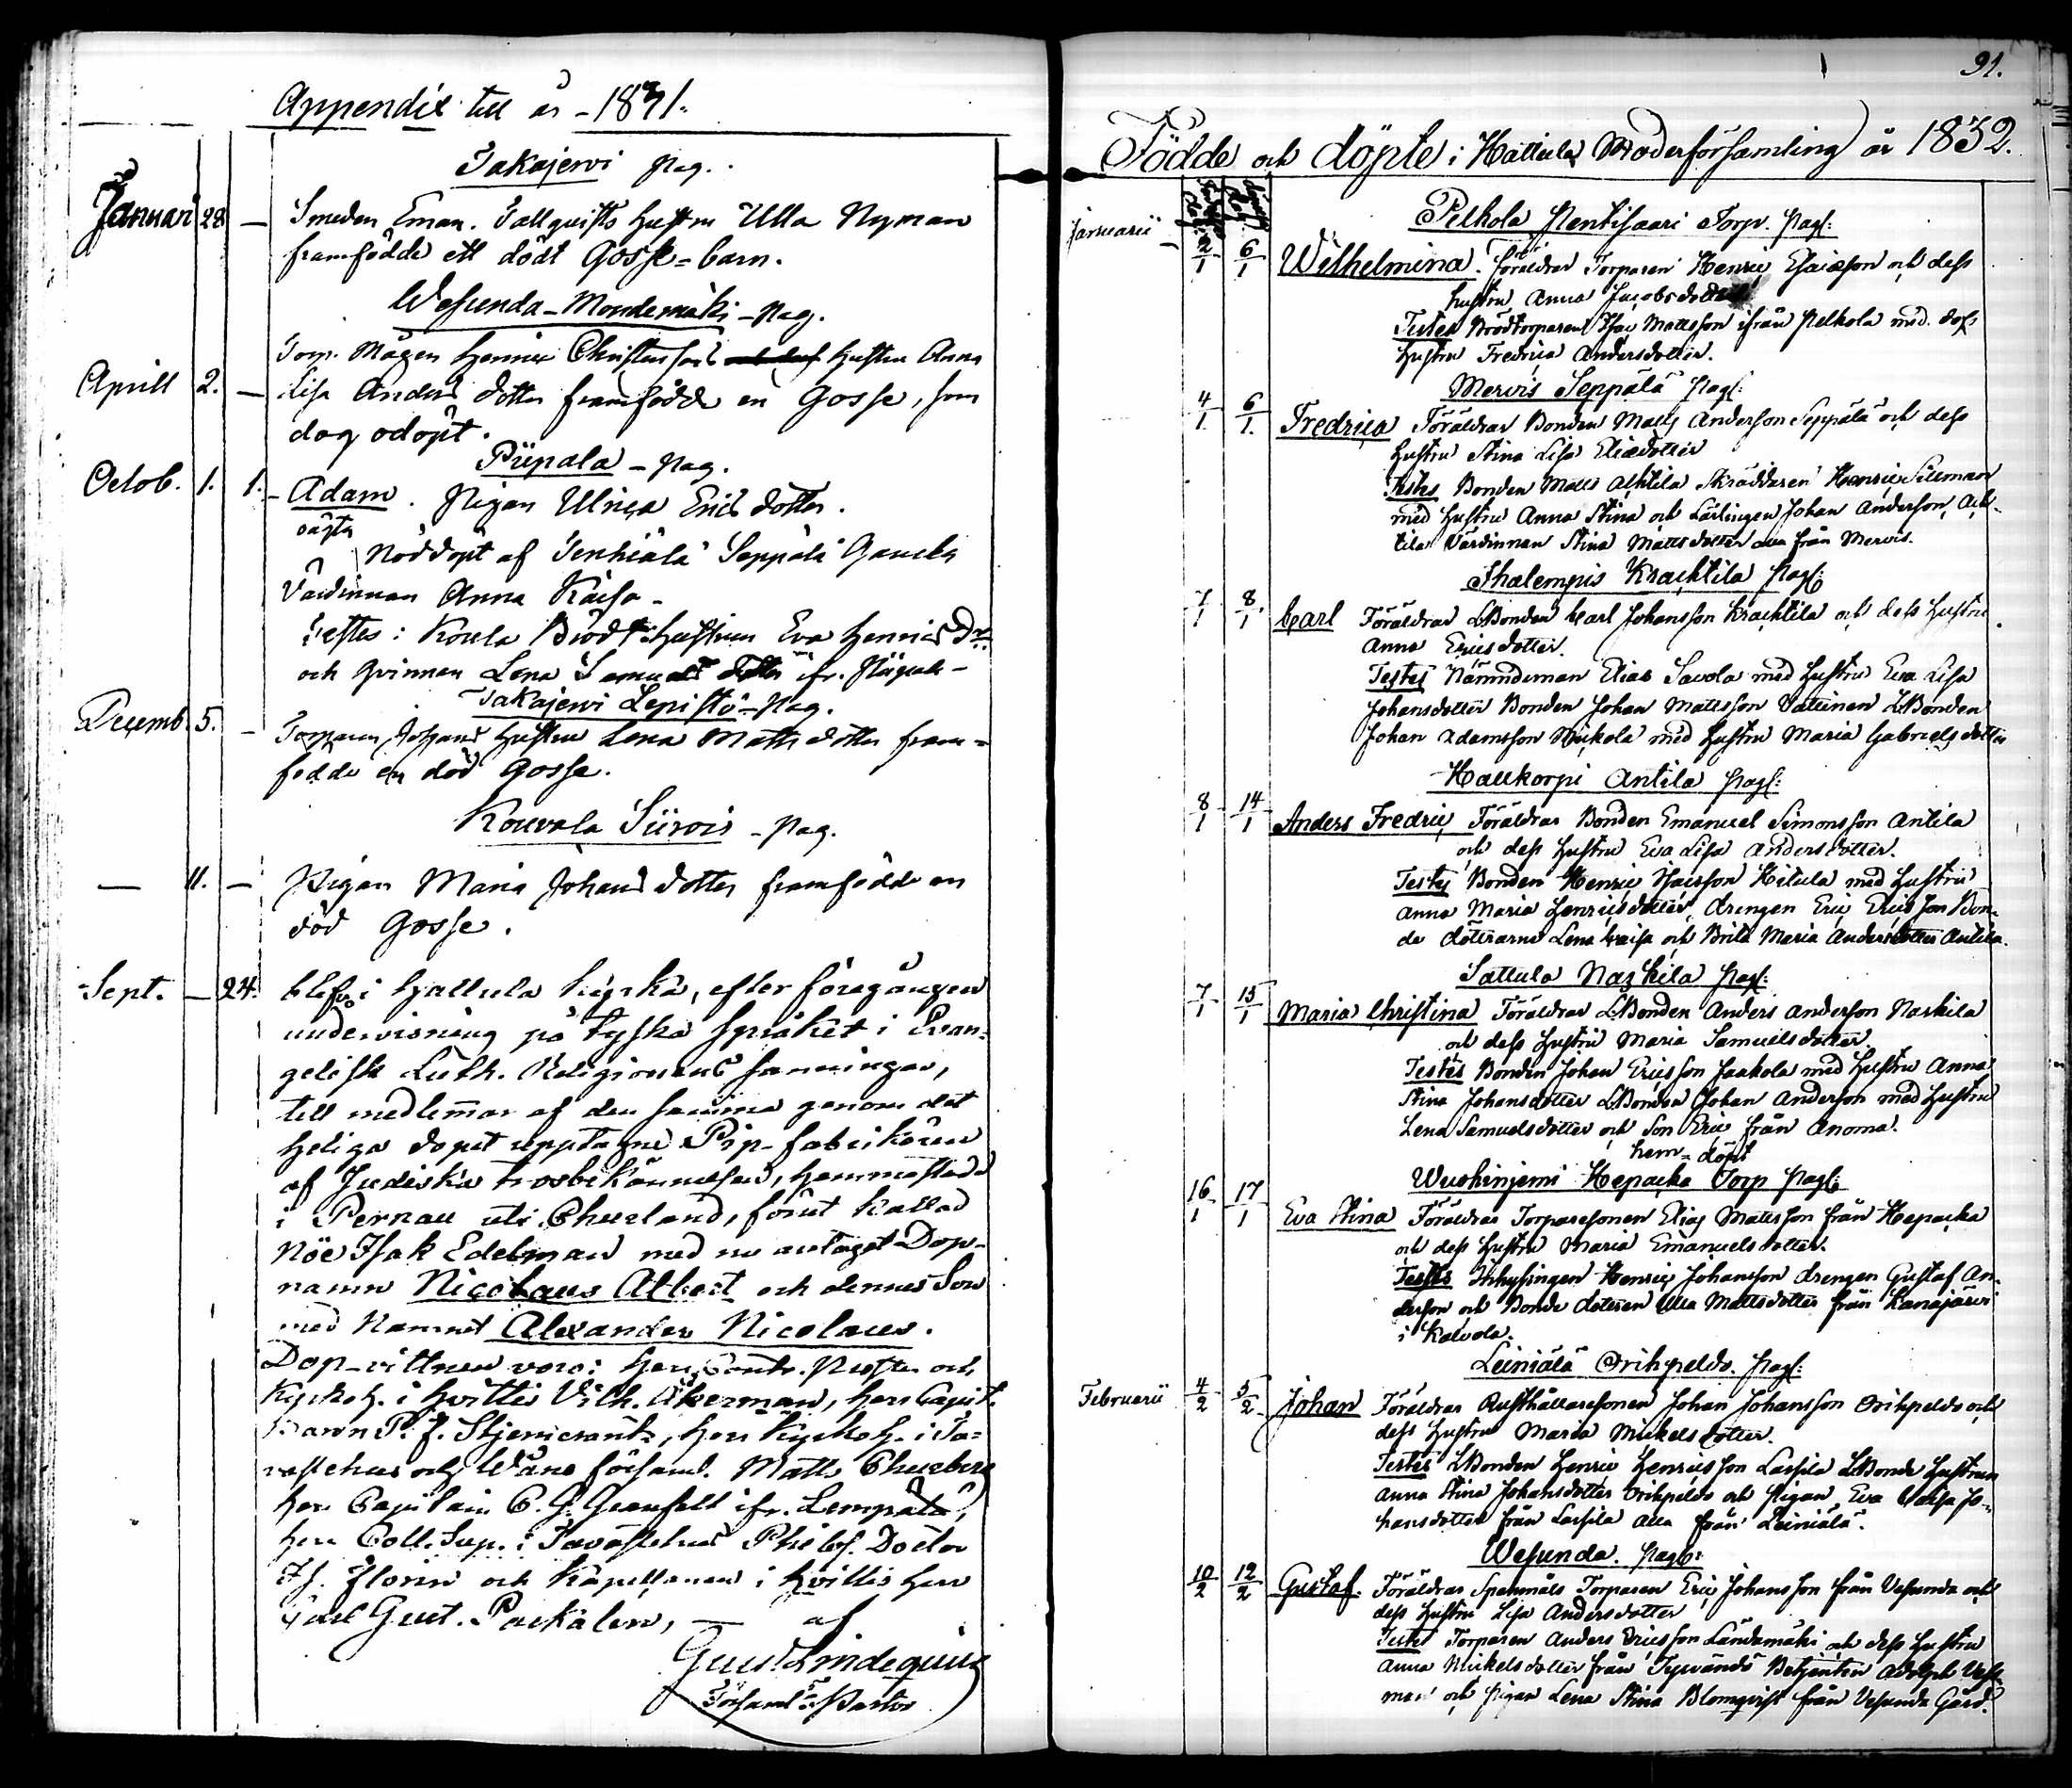 Appendix till år - 1831.
Jakajervi pag.
Januari 28 — Smeden Eman. Tallqvists hustru Ulla Nyman
framfödde ett dödt Gosse-barn.
Wesunda-Mondemäki - pag.
Torp. Mågen Henric Christerssons hustru Anna
Aprill 2. — Lisa Anders dotter framfödde en Gosse, som
dog odöpt.
Piipala - pag.
Octob. 1. 1. - Adam. Pigan Ulrica Erics dotter.
oägta
Nöddöpt af Tenhiälä Seppälä Gamla
Värdinnan Anna Kaisa -
Testes: Koula Brodt: hustrun Eva Henrics Dr
och qvinnan Lena Samuels dotter ifr.
Jakajervi Lepistö - Pag.
Decemb. 5. - Torparen Johans hustru Lena Matts dotter fram-
fødde en död Gosse.
Kouvola Siirois - pag.
— 11. — Pigan Maria Johans dotter framfödde en
död Gosse.
Sept. — 24. blefvo i Hattula kyrka, efter föregången
undervisning på tyska språket i Evan-
gelisk Luth. Religionens sanningar,
till medlemmar af den samma genom det
heliga dopet upptagne Pip-fabrikören
af Judiska trosbekännelsen, hemmastadd
i Pernau uti Churland, förut kallad
Nöe Isak Edelman med nu antaget Dop-
namn Nicolaus Albert och dennes Son
med Namnet Alexander Nicolaus.
Dop-vittnen voro: Herr Contr. Prosten och
Kyrkoh. i Hvittis Vilh. Åkerman, herr Capit.
Baron P. J. Stjerncrantz, Herr Kyrkoh. i Ta-
vastehus och Wånå församl. Matts Churberg
herr Capitain C. G. Granfelt ifr. Lempälä,
herr Coll. Sup. i Tavastehus Philos. Doctor
Florin och Kapellanen i Hvittis Herr
Carl Gust. Packalén, — af
Gust. Lindequist
Församl:s Pastor
91.
Födde och döpte i Hattula Moderförsamling år 1832.
Pelkola Pentisaari Torp. Pagl:
Januarii — 2/1 6/1 Wilhelmina. Föräldrar Torparen Henric Esaiæson och dess
hustru Anna Jacobsdotter
Testes Brodtorparen Isac Mattsson ifrån Pelkola med dess
hustru Fredrica Andersdotter.
Mervis Seppälä Pagl:
4/1. 6/1. Fredrica Föräldrar Bonden Matts Anderson Seppälä och dess
hustru Stina Lisa Eliædotter
Testes Bonden Matts Achtila Skräddaren Henric Sileman
med hustru Anna Stina och Lärlingen Johan Anderson, Ach-
tila Värdinnan Stina Mattsdotter alla från Mervis.
Ihalempis Krachtila Pagl:
7/1 8/1 Carl Föräldrar LBonden Carl Johansson Krachtila och dess hustru
Anna Ericsdotter.
Testes Nämndeman Elias Savola med hustru Eva Lisa
Johansdotter Bonden Johan Mattsson Vattinen LBonden
Johan Adamsson Mickola med hustru Maria Gabrielsdotter
Hallikorpi Antila Pagl:
8/1 14/1 Anders Fredric Föräldrar Bonden Emanuel Simonsson Antila
och dess hustru Eva Lisa Andersdotter.
Testes Bonden Henric Isacsson Hitula med hustru
Anna Maria Henricsdotter, drengen Eric Ericsson Bon-
de dötterarne Lena Caisa och Brita Maria Andersdotter Antila.
Sattula Naskila Pagl:
7/1 15/1 Maria Christina Föräldrar LBonden Anders Anderson Naskila
och dess hustru Maria Samuelsdotter.
Testes Bonden Johan Ericsson Jaakola med hustru Anna
Stina Johansdotter LBonden Johan Anderson med hustru
Lena Samuelsdotter och Son Eric från Anoma.
hem-döpt
Wuohiniemi Hepacka Torp Pagl:
16/1 17/1 Eva Stina Föräldrar Torparesonen Elias Mattsson från Hepacka
och dess hustru Maria Emanuelsdotter.
Testes Inhysingen Henric Johansson drengen Gustaf An-
derson och Bonde dotteren Ulla Mattsdotter från Kanajärvi
i Kalvola.
Leiniälä Orihpeldo. Pagl:
Februarii 4/2 5/2 Johan Föräldrar Rusthållaresonen Johan Johansson Orihpeldo och
dess hustru Maria Mickelsdotter.
Testes LBonden Henric Henricsson Lassila LBonde hustrun
Anna Stina Johansdotter Orihpeldo och Pigan Eva Caisa Jo-
hansdotter från Lassila alla från Leiniälä.
Wesunda. Pagl:
10/2 12/2 Gustaf. Föräldrar Spanmåls Torparen Eric Johansson från Vesunda och
dess hustru Lisa Andersdotter
Testes Torparen Anders Ericsson Landsmäki och dess hustru
Anna Mickelsdotter från Tyrvändö Betjenten Adolph Vest-
man och pigan Lena Stina Blomqvist från Vesunda Gård.